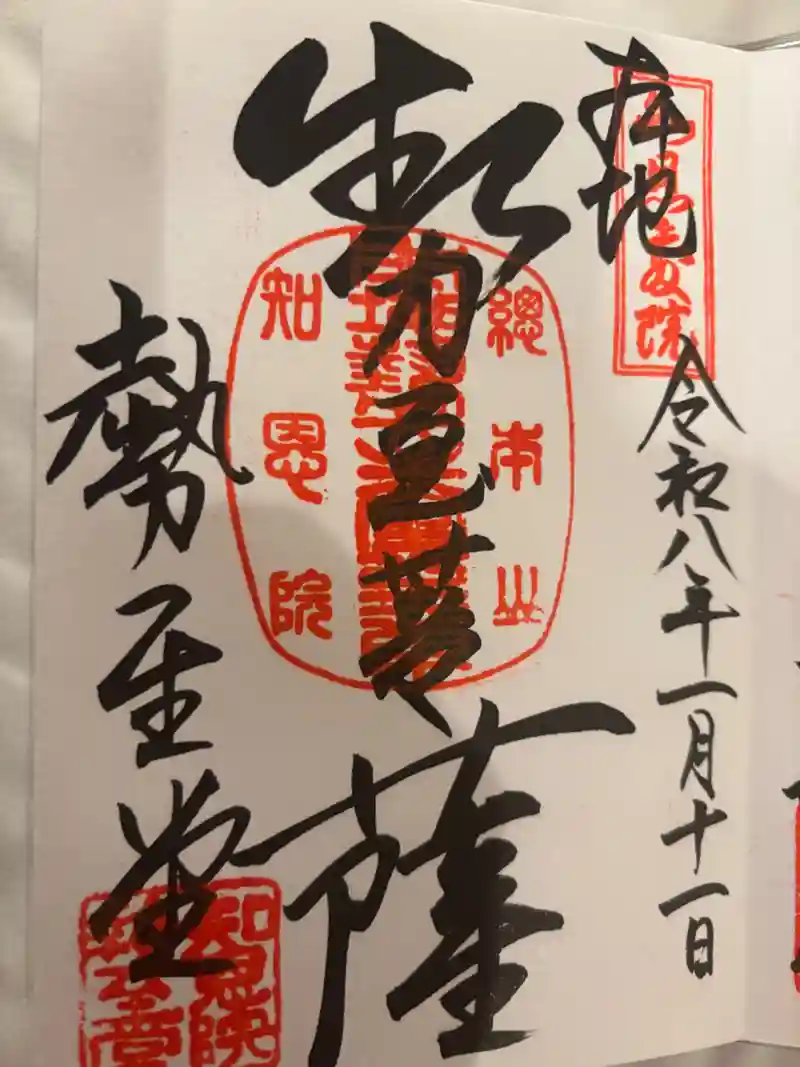 本地
令和八年一月十一日
勢至菩薩
總本山
知恩院
勢至堂
知恩院
勢至堂